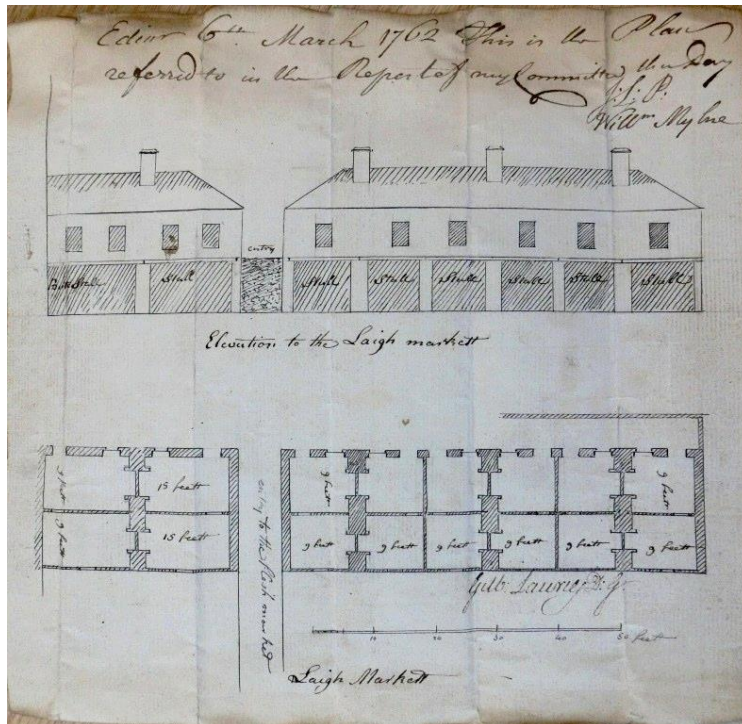 Edinr 6th March 1762 This is the Plan
referred to in the Report of my Committy this Day
J: L: P:
Willm Mylne
entry
Stall
Stall
Stall
Stall
Stall
Stall
Stall
Stall
Elevation to the Laigh markett
9 feett
15 feett
9 feett
15 feett
entry to the flesh market
9 feett
9 feett
9 feett
9 feett
9 feett
9 feett
9 feett
9 feett
Gilb. Laurie D: G:
10 20 30 40 50 feett
Laigh Markett